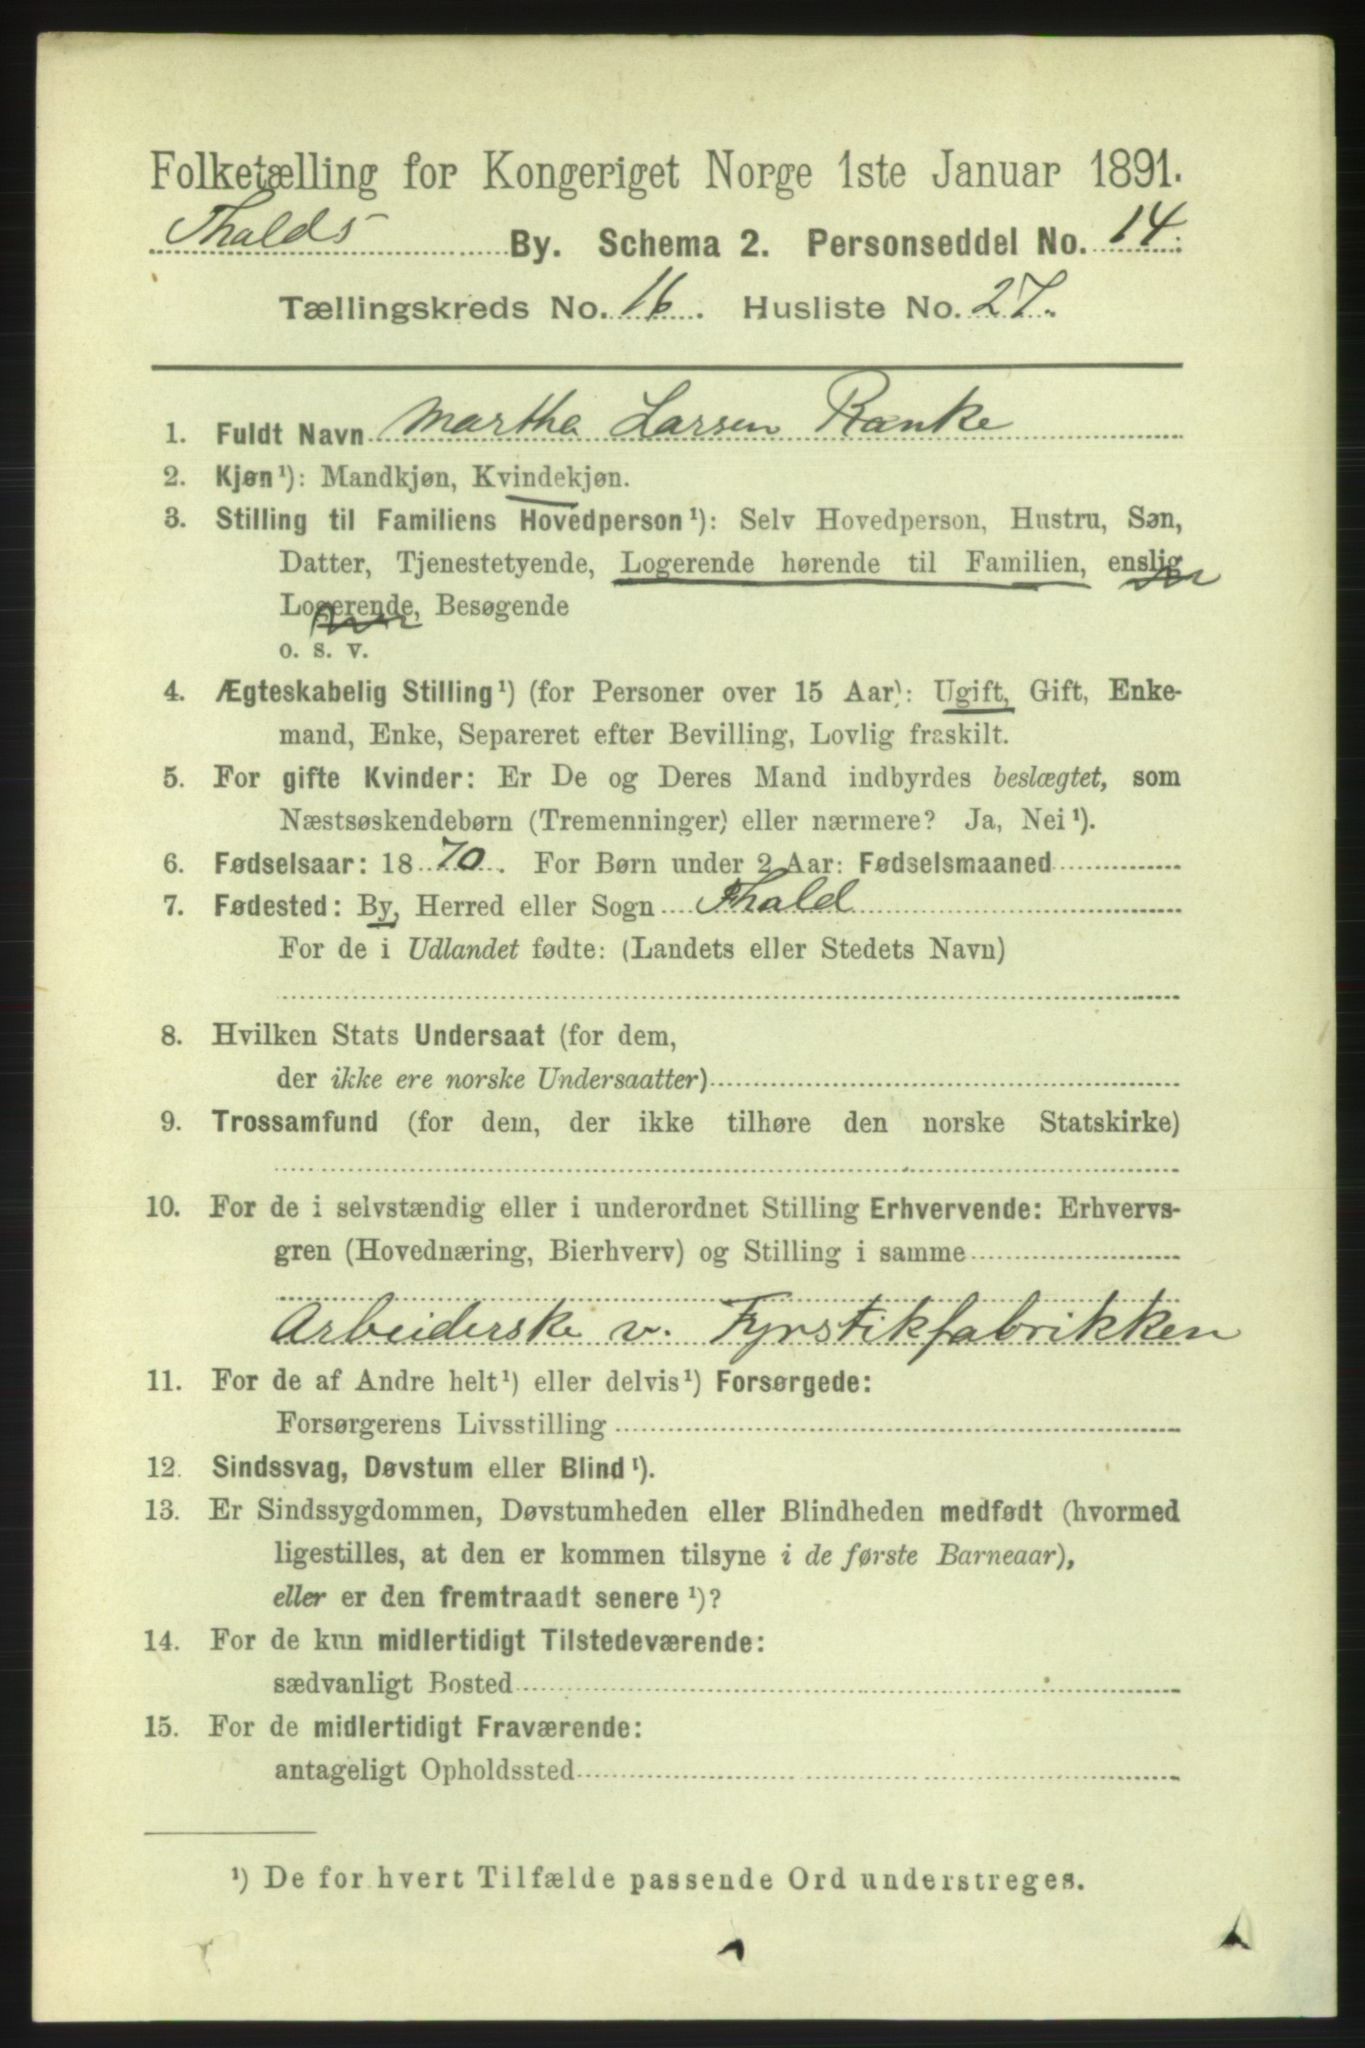 Folketælling for Kongeriget Norge 1ste Januar 1891.
Fhalds By. Schema 2. Personseddel No. 14.
Tællingskreds No. 16. Husliste No. 27.
1. Fuldt Navn Martha Larsen Ranke
2. Kjøn¹): Mandkjøn, Kvindekjøn.
3. Stilling til Familiens Hovedperson¹): Selv Hovedperson, Hustru, Søn,
Datter, Tjenestetyende, Logerende hørende til Familien, enslig
Logerende, Besøgende
o. s. v.
4. Ægteskabelig Stilling¹) (for Personer over 15 Aar): Ugift, Gift, Enke-
mand, Enke, Separeret efter Bevilling, Lovlig fraskilt.
5. For gifte Kvinder: Er De og Deres Mand indbyrdes beslægtet, som
Næstsøskendebørn (Tremenninger) eller nærmere? Ja, Nei¹).
6. Fødselsaar: 1870. For Børn under 2 Aar: Fødselsmaaned
7. Fødested: By, Herred eller Sogn Fhald
For de i Udlandet fødte: (Landets eller Stedets Navn)
8. Hvilken Stats Undersaat (for dem,
der ikke ere norske Undersaatter)
9. Trossamfund (for dem, der ikke tilhøre den norske Statskirke)
10. For de i selvstændig eller i underordnet Stilling Erhvervende: Erhvervs-
gren (Hovednæring, Bierhverv) og Stilling i samme
Arbeiderske v. Fyrstikfabrikken
11. For de af Andre helt¹) eller delvis¹) Forsørgede:
Forsørgerens Livsstilling
12. Sindssvag, Døvstum eller Blind¹).
13. Er Sindssygdommen, Døvstumheden eller Blindheden medfødt (hvormed
ligestilles, at den er kommen tilsyne i de første Barneaar),
eller er den fremtraadt senere¹)?
14. For de kun midlertidigt Tilstedeværende:
sædvanligt Bosted
15. For de midlertidigt Fraværende:
antageligt Opholdssted
¹) De for hvert Tilfælde passende Ord understreges.